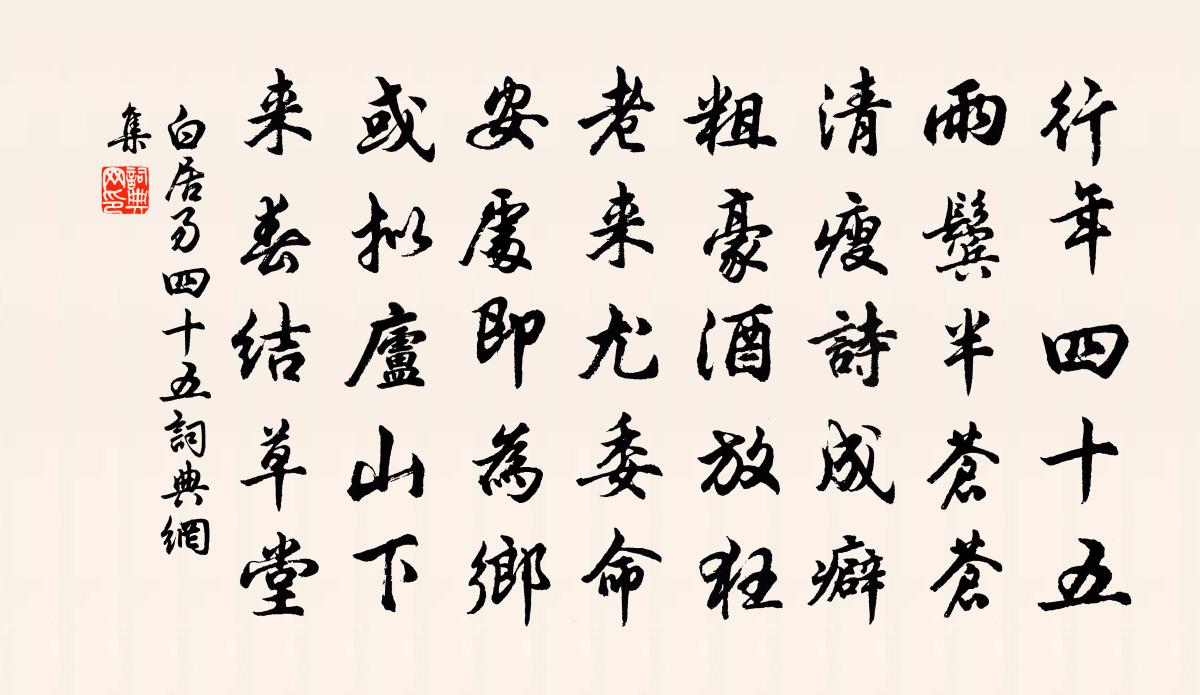 行年四十五
兩鬢半蒼蒼
清瘦詩成癖
粗豪酒放狂
老来尤委命
安處即為鄉
或拟廬山下
来春结草堂
白居易四十五詞典網
集
詞典
网印